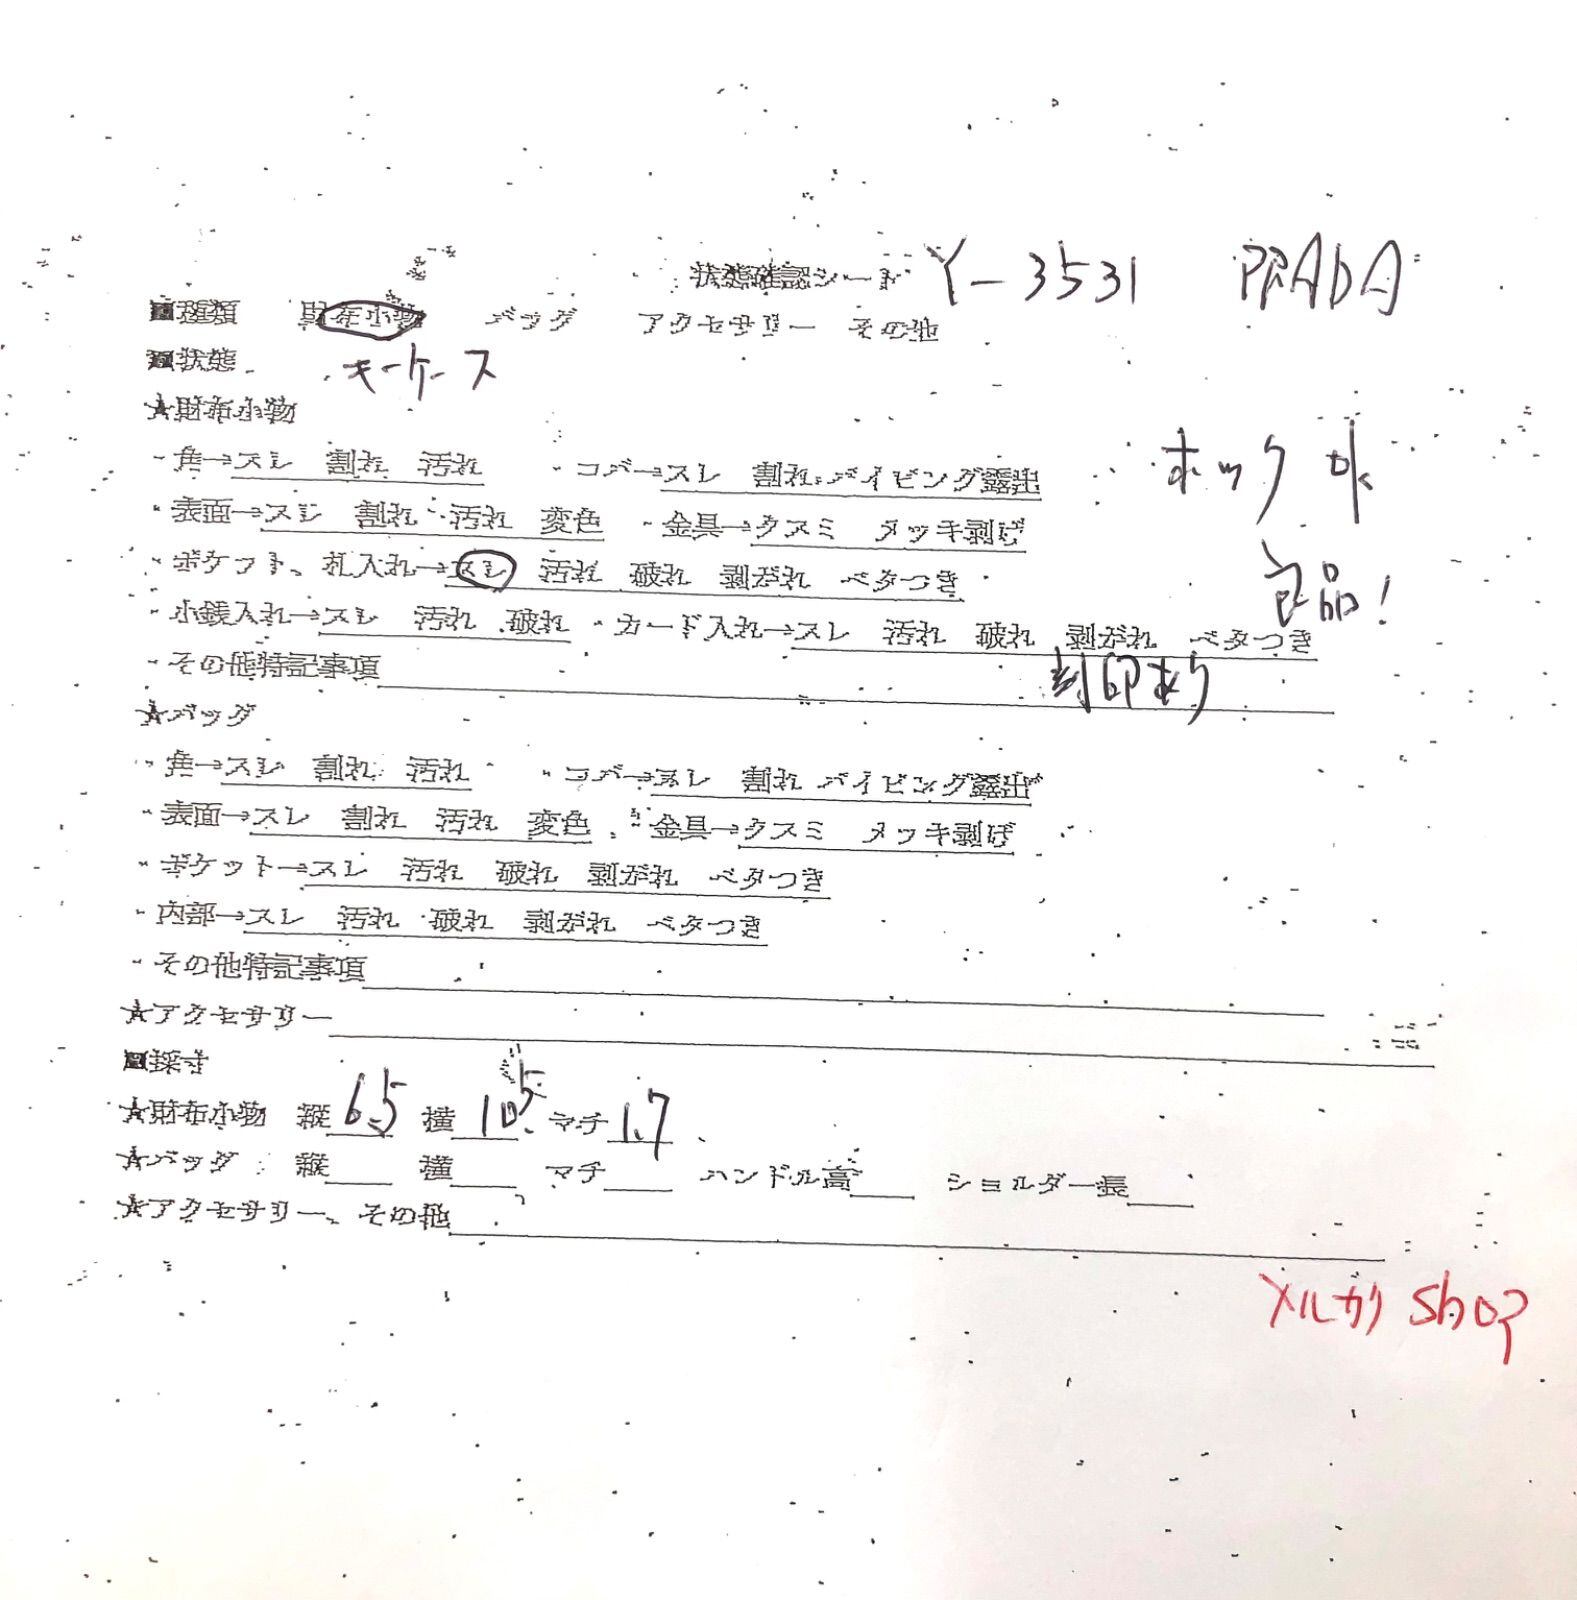 状態確認シート Y-3531 PRADA
■種類 財布小物 バッグ アクセサリー その他
■状態 キーケース
★財布小物
・角→スレ 割れ 汚れ ・コバ→スレ 割れ パイピング露出
ホック OK
・表面→スレ 割れ 汚れ 変色 ・金具→クスミ メッキ剥げ
・ポケット、札入れ→スレ 汚れ 破れ 剥がれ ベタつき
良品!
・小銭入れ→スレ 汚れ 破れ ・カード入れ→スレ 汚れ 破れ 剥がれ ベタつき
・その他特記事項 刻印あり
★バッグ
・角→スレ 割れ 汚れ ・コバ→スレ 割れ パイピング露出
・表面→スレ 割れ 汚れ 変色 ・金具→クスミ メッキ剥げ
・ポケット→スレ 汚れ 破れ 剥がれ ベタつき
・内部→スレ 汚れ 破れ 剥がれ ベタつき
・その他特記事項
★アクセサリー
■採寸
★財布小物 縦 6.5 横 10.5 マチ 1.7
★バッグ 縦 横 マチ ハンドル高 ショルダー長
★アクセサリー、その他
メルカリ shop